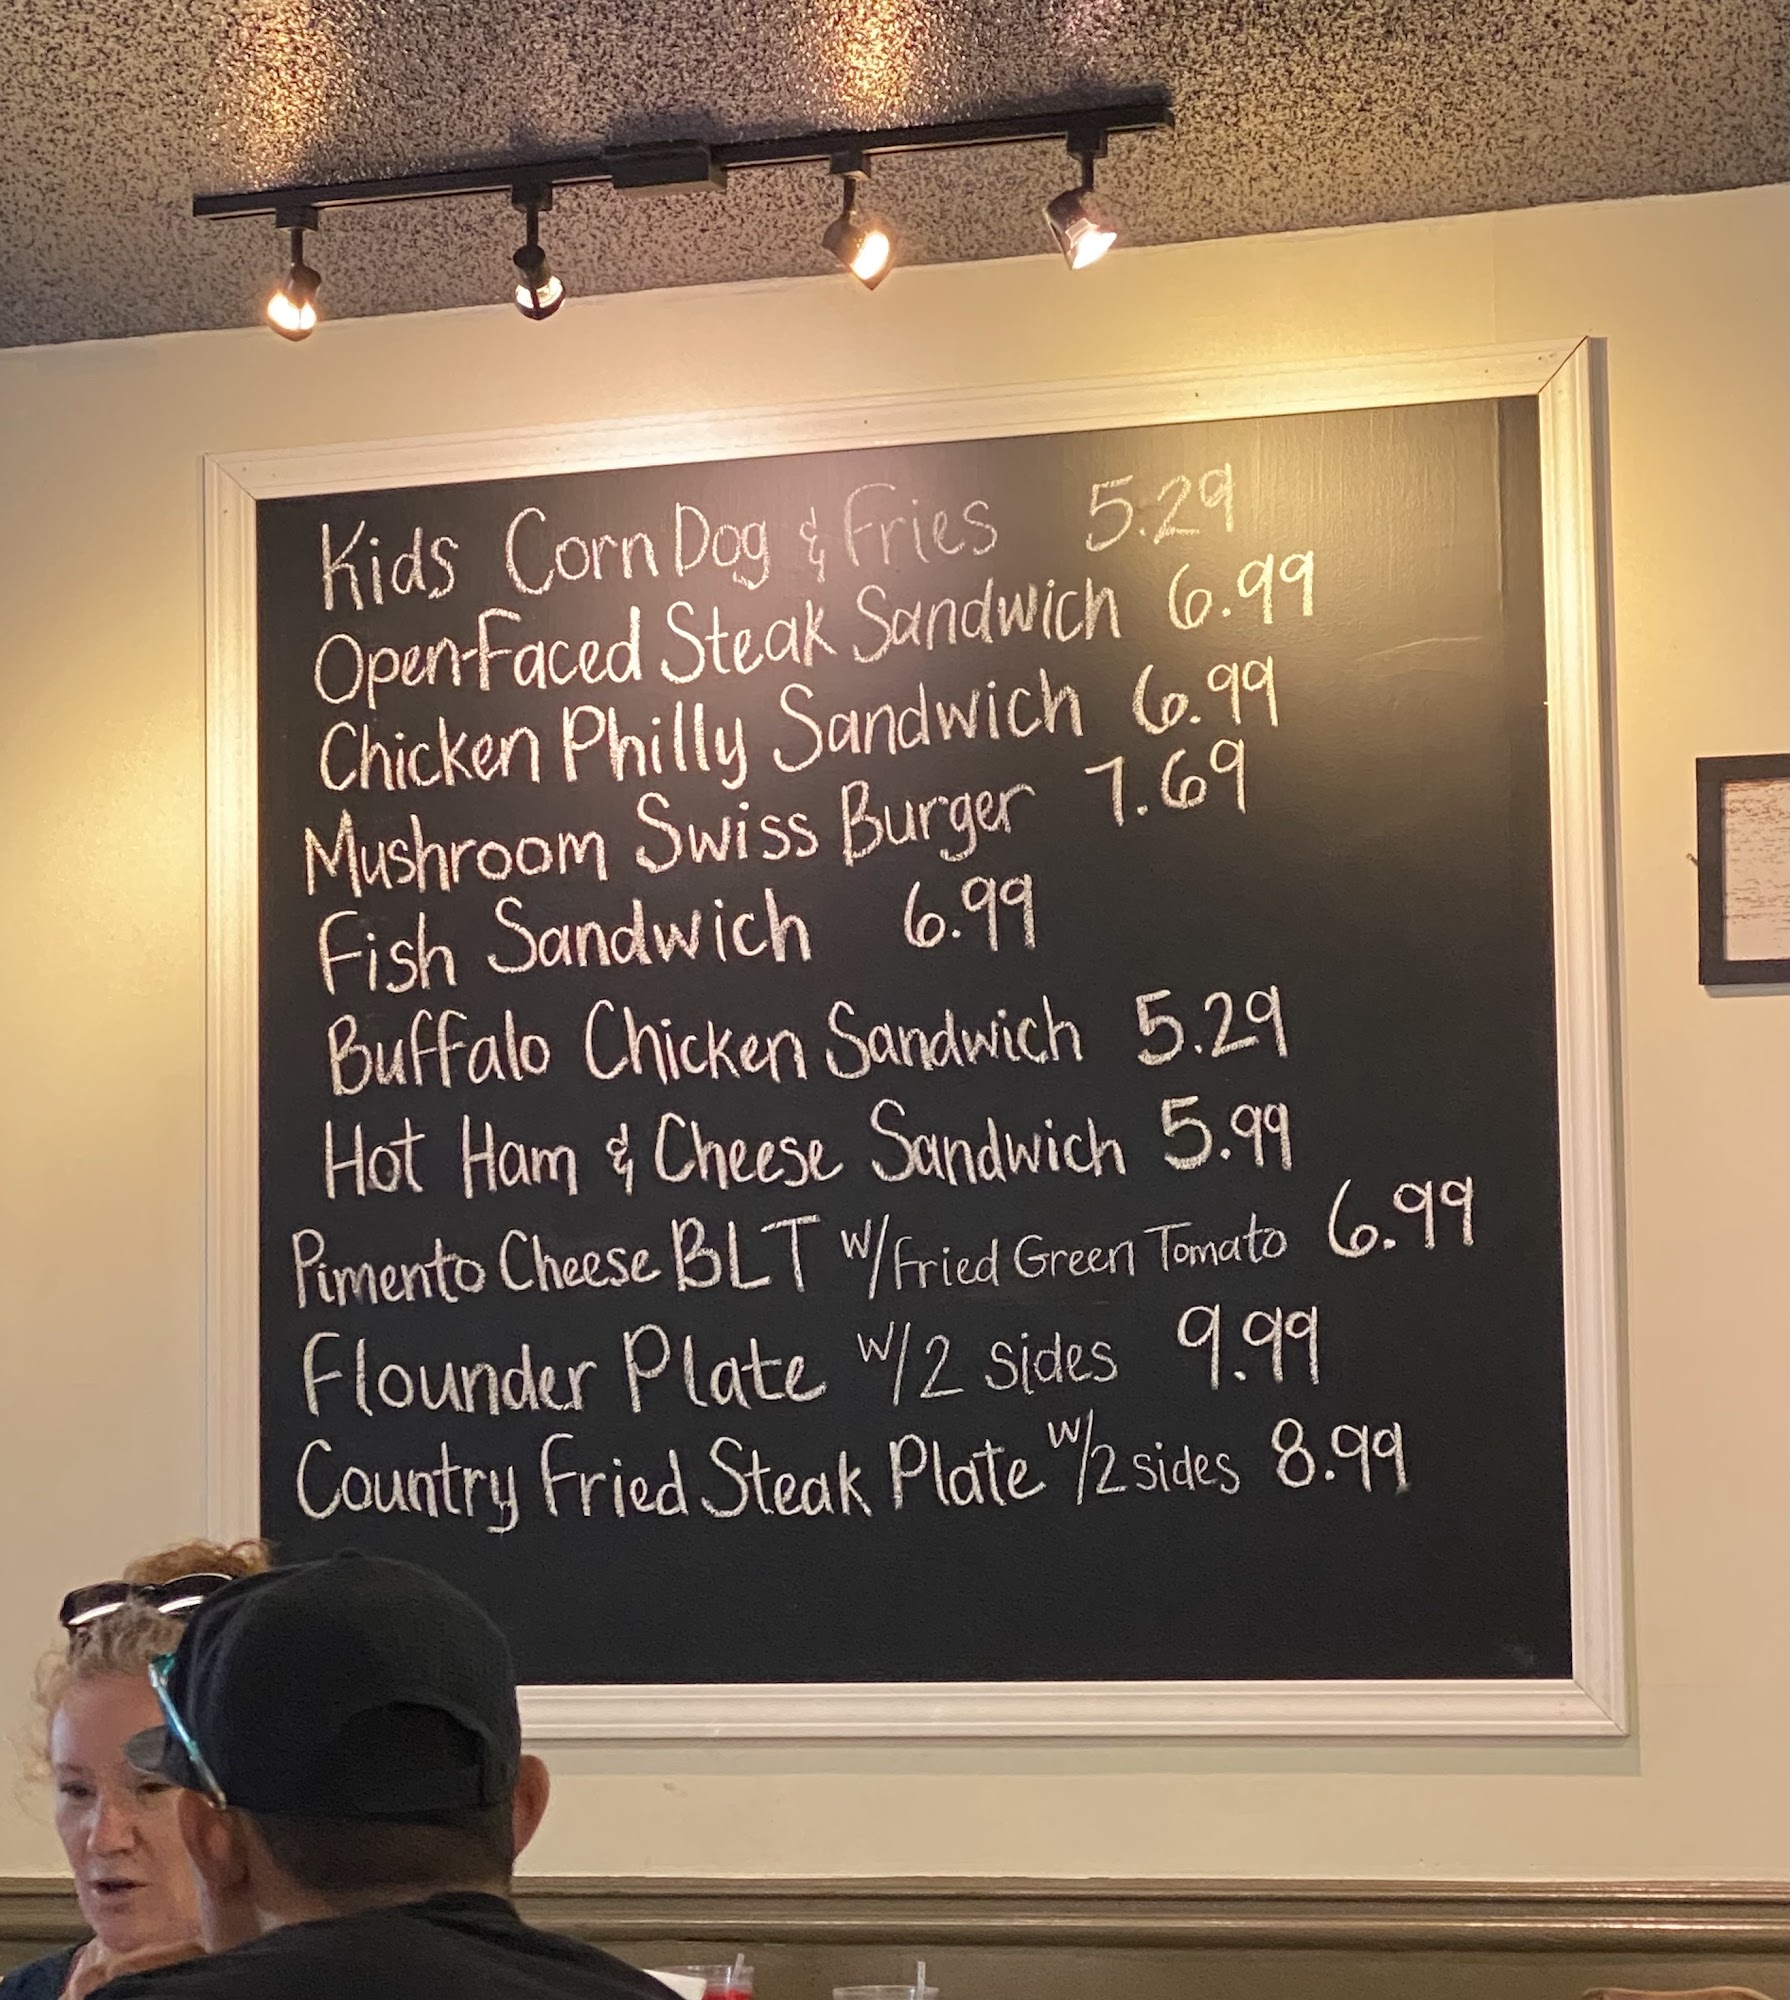 Kids Corn Dog & Fries 5.29
Open-Faced Steak Sandwich 6.99
Chicken Philly Sandwich 6.99
Mushroom Swiss Burger 7.69
Fish Sandwich 6.99
Buffalo Chicken Sandwich 5.29
Hot Ham & Cheese Sandwich 5.99
Pimento Cheese BLT w/Fried Green Tomato 6.99
Flounder Plate w/2 sides 9.99
Country Fried Steak Plate w/2 sides 8.99